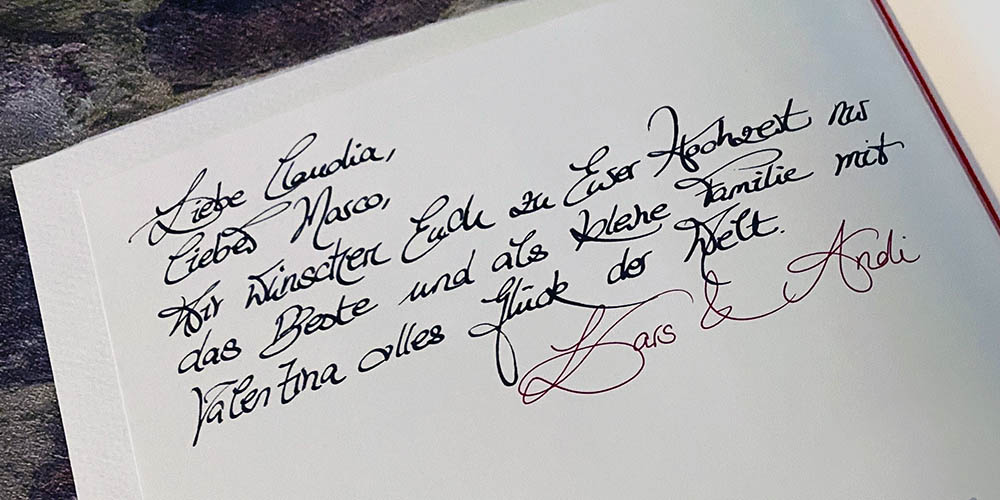 Liebe Claudia,
lieber Marco,
Wir wünschen Euch zu Eurer Hochzeit nur
das Beste und als kleine Familie mit
Valentina alles Glück der Welt.
Lars & Andi